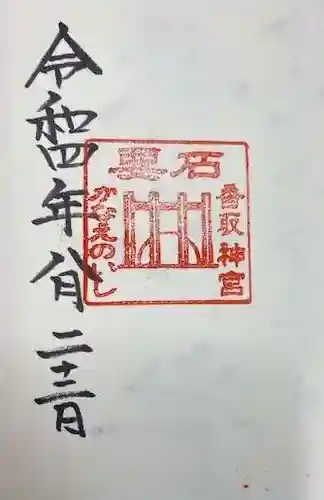 香取神宮
霊石
かなめのいし
令和四年八月二十三日